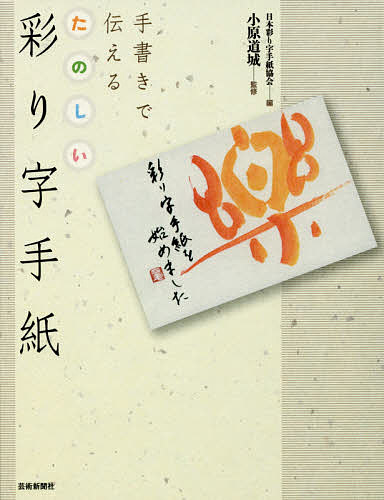 日本彩り字手紙協会――編
小原道城――監修
手書きで
伝える
たのしい
彩り字手紙
楽
彩り字手紙を
始めました
芸術新聞社